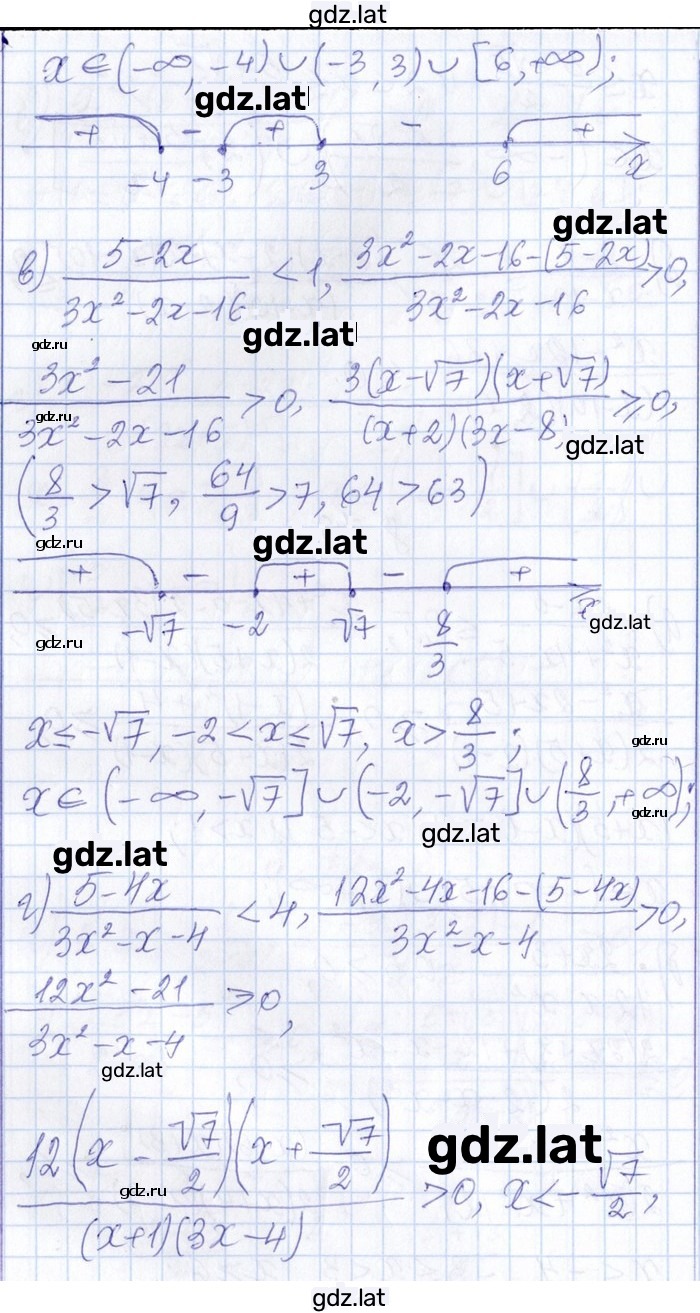 gdz.lat
x ∈ (-∞, -4) ∪ (-3, 3) ∪ [6, +∞);
gdz.lat
+ - + - +
-4 -3 3 6 x
gdz.lat
в) (5-2x)/(3x²-2x-16) < 1, (3x²-2x-16-(5-2x))/(3x²-2x-16) > 0,
gdz.ru
gdz.lat
(3x²-21)/(3x²-2x-16) > 0, (3(x-√7)(x+√7))/((x+2)(3x-8)) ⩾ 0,
gdz.ru
gdz.lat
(8/3 > √7, 64/9 > 7, 64 > 63)
gdz.ru
gdz.lat
+ - + - +
-√7 -2 √7 8/3 x
gdz.ru
gdz.lat
x ≤ -√7, -2 < x ≤ √7, x > 8/3;
gdz.ru
x ∈ (-∞, -√7] ∪ (-2, -√7] ∪ (8/3, +∞);
gdz.ru
gdz.lat
gdz.lat
г) (5-4x)/(3x²-x-4) < 4, (12x²-4x-16-(5-4x))/(3x²-x-4) > 0,
(12x²-21)/(3x²-x-4) ⩾ 0,
gdz.lat
(12(x - √7/2)(x + √7/2))/((x+1)(3x-4)) > 0, x < -√7/2,
gdz.ru
gdz.lat
gdz.lat